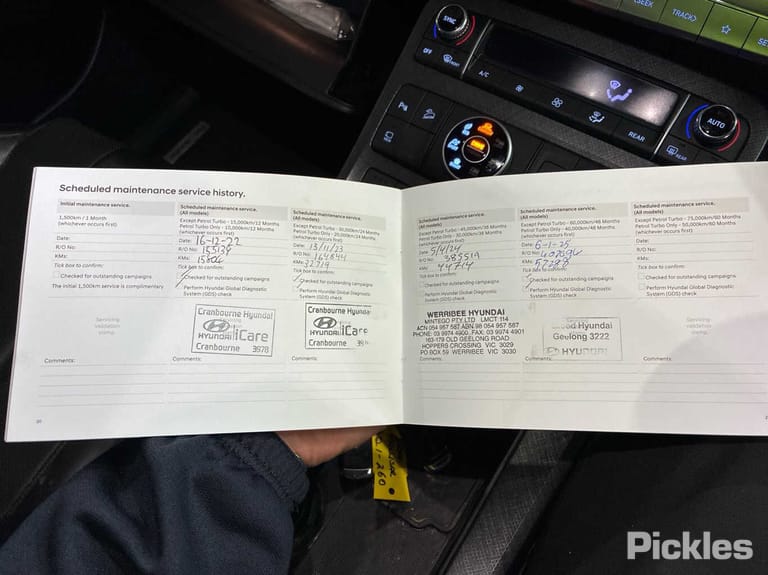 SYNC
SEEK
TRACK
OFF
A/C
AUTO
REAR
REAR
Scheduled maintenance service history.
Initial maintenance service.
1,500km / 1 Month
(whichever occurs first)
Date:
R/O No:
KMs:
Tick box to confirm:
Checked for outstanding campaigns
The initial 1,500km service is complimentary
Servicing
validation
stamp
Comments:
Scheduled maintenance service.
(All models)
Except Petrol Turbo - 15,000km/12 Months
Petrol Turbo Only - 10,000km/12 Months
(whichever occurs first)
Date: 16-12-22
R/O No: 155134
KMs: 15804
Tick box to confirm:
Checked for outstanding campaigns
Perform Hyundai Global Diagnostic
System (GDS) check
Cranbourne Hyundai
HYUNDAI iCare
Cranbourne 3978
Comments:
Scheduled maintenance service.
(All models)
Except Petrol Turbo - 30,000km/24 Months
Petrol Turbo Only - 20,000km/24 Months
(whichever occurs first)
Date: 13/11/23
R/O No: 164844
KMs: 32719
Tick box to confirm:
Checked for outstanding campaigns
Perform Hyundai Global Diagnostic
System (GDS) check
Cranbourne Hyundai
HYUNDAI iCare
Cranbourne
Comments:
Scheduled maintenance service.
(All models)
Except Petrol Turbo - 45,000km/36 Months
Petrol Turbo Only - 30,000km/36 Months
(whichever occurs first)
Date: 5/4/24
R/O No: 385519
KMs: 44714
Tick box to confirm:
Checked for outstanding campaigns
Perform Hyundai Global Diagnostic
System (GDS) check
WERRIBEE HYUNDAI
MINTEGO PTY LTD LMCT 114
ACN 054 957 587 ABN 98 054 957 587
PHONE: 03 9974 4900 FAX: 03 9974 4901
163-179 OLD GEELONG ROAD
HOPPERS CROSSING VIC 3029
PO BOX 59 WERRIBEE VIC 3030
Comments:
Scheduled maintenance service.
(All models)
Except Petrol Turbo - 60,000km/48 Months
Petrol Turbo Only - 40,000km/48 Months
(whichever occurs first)
Date: 6-1-25
R/O No:
KMs:
Tick box to confirm:
Checked for outstanding campaigns
Perform Hyundai Global Diagnostic
System (GDS) check
Hyundai
Geelong 3222
HYUNDAI
Comments:
Scheduled maintenance service.
(All models)
Except Petrol Turbo - 75,000km/60 Months
Petrol Turbo Only - 50,000km/60 Months
(whichever occurs first)
Date:
R/O No:
KMs:
Tick box to confirm:
Checked for outstanding campaigns
Perform Hyundai Global Diagnostic
System (GDS) check
Servicing
validation
stamp
Comments:
Pickles